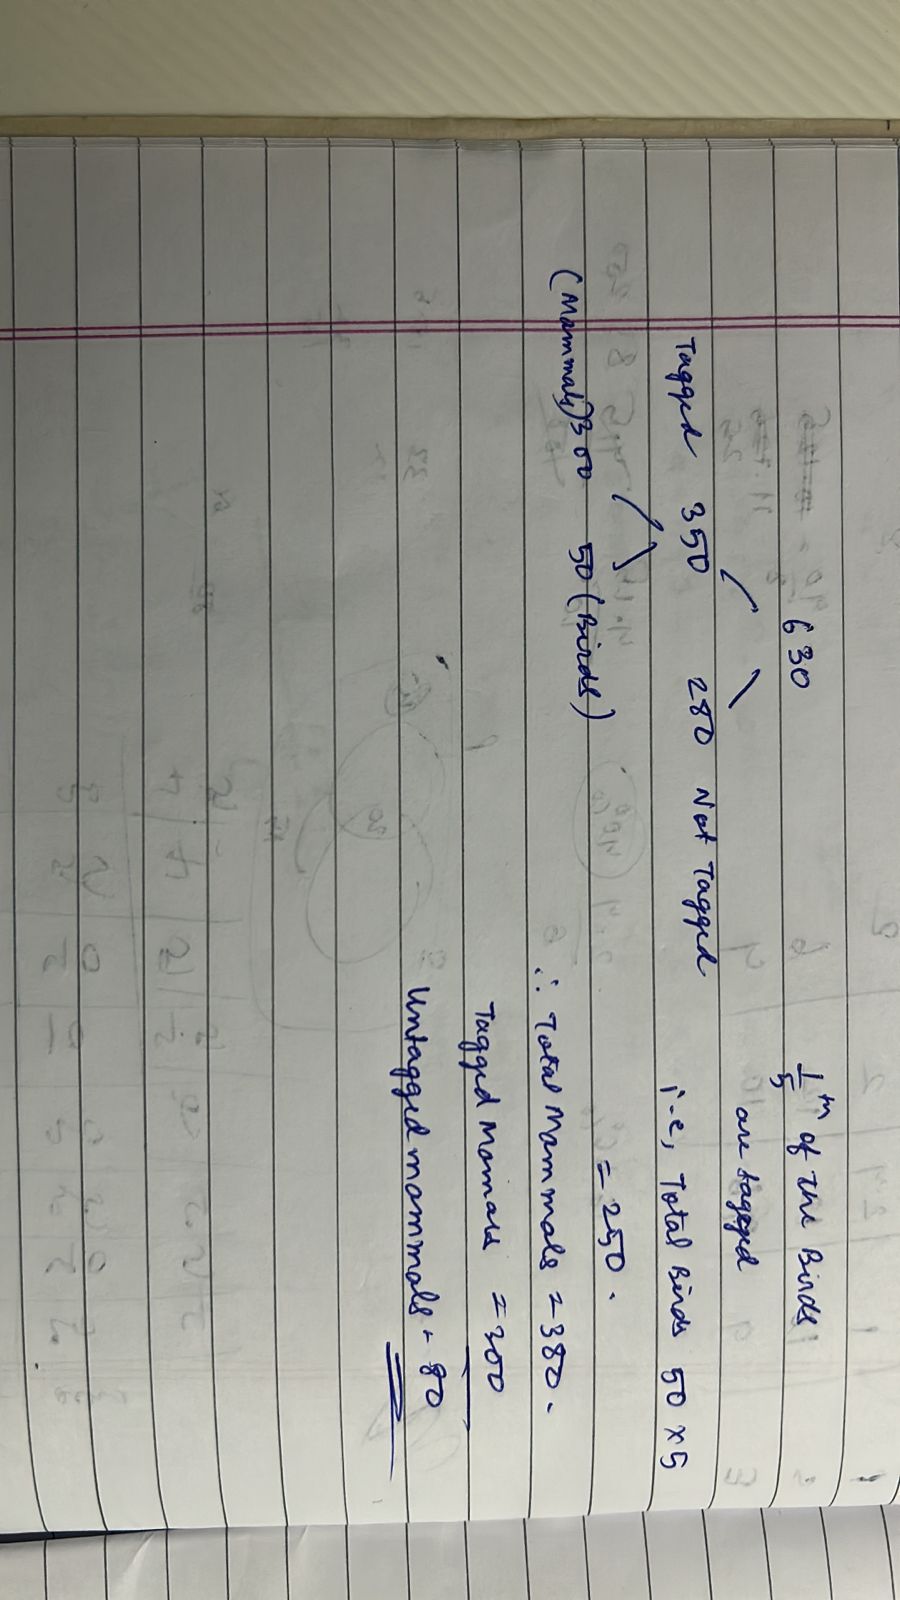 630
Tagged 350 280 Not Tagged
(Mammals) 300 50 (Birds)
1/5 th of the Birds
are tagged
i.e, Total Birds 50 x 5
= 250.
∴ Total Mammals = 380.
Tagged Mammals = 300
Untagged mammals - 80